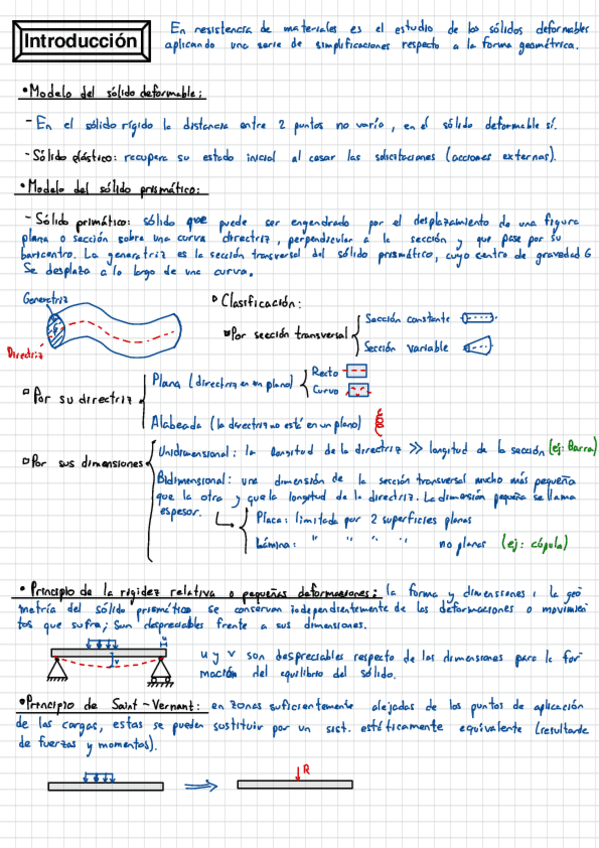 Introducción
En resistencia de materiales es el estudio de los sólidos deformables
aplicando una serie de simplificaciones respecto a la forma geométrica.
• Modelo del sólido deformable:
- En el sólido rígido la distancia entre 2 puntos no varía, en el sólido deformable sí.
- Sólido elástico: recupera su estado inicial al cesar las solicitaciones (acciones externas).
• Modelo del sólido prismático:
- Sólido primático: sólido que puede ser engendrado por el desplazamiento de una figura
plana o sección sobre una curva directriz, perpendicular a la sección y que pase por su
baricentro. La generatriz es la sección transversal del sólido prismático, cuyo centro de gravedad G
Se desplaza a lo largo de una curva.
Generatriz
Directriz
Clasificación:
Por sección transversal
Sección constante
Sección variable
Por su directriz
Plana (directriz en un plano)
Recto
Curvo
Alabeada (la directriz no está en un plano)
Por sus dimensiones
Unidimensional: la longitud de la directriz >> longitud de la sección (ej: Barra)
Bidimensional: una dimensión de la sección transversal mucho más pequeña
que la otra y que la longitud de la directriz. La dimensión pequeña se llama
espesor.
Placa: limitada por 2 superficies planas
Lámina: " " " " no planas (ej: cúpula)
• Principio de la rigidez relativa o pequeñas deformaciones: la forma y dimensiones, la geo
metría del sólido prismático se conservan independientemente de las deformaciones o movimien
tos que sufra; Sun despreciables frente a sus dimensiones.
u
v
u y v son despreciables respecto de las dimensiones para la for
mación del equilibrio del sólido.
• Principio de Saint-Vernant: en zonas suficientemente alejadas de los puntos de aplicación
de las cargas, estas se pueden sustituir por un sist. estáticamente equivalente (resultante
de fuerzas y momentos).
R